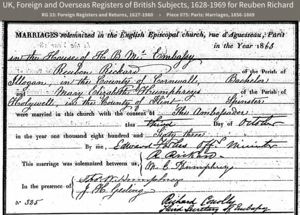 UK, Foreign and Overseas Registers of British Subjects, 1628-1969 for Reuben Richard
RG 33: Foreign Registers and Returns, 1627-1960 Piece 075: Paris: Marriages, 1856-1869
MARRIAGES solemnized in the English Episcopal church, rue d'Aguesseau, Paris
in the Year 1863
in the House of H. B. M's Embassy
Reuben Rickard of the Parish of
Illogan, in the County of Cornwall, Bachelor
and Mary Elizabeth Humphreys of the Parish of
Holywell, in the County of Flint Spinster
were married in this church with the consent of This Ambassador
this Third Day of October
in the year one thousand eight hundred and Sixty three
By Edward Off. Minister
This marriage was solemnized between us, R. Rickard
M. E. Humphrey
In the presence of
J. M.
Richard
No 535 Third Secretary of Embassy